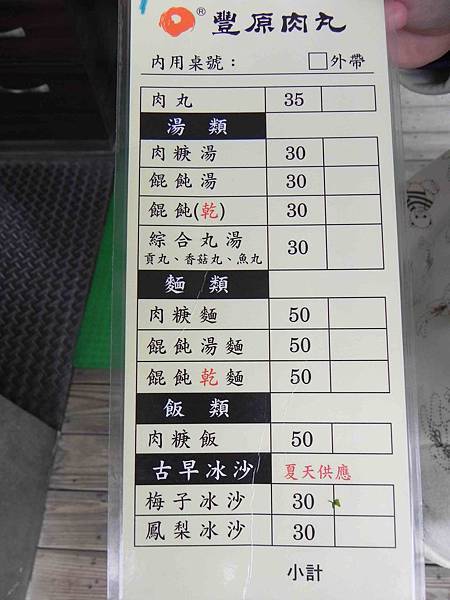 ® 豐原肉丸
內用桌號： □外帶
肉丸 35
湯類
肉糖湯 30
餛飩湯 30
餛飩(乾) 30
綜合丸湯 30
貢丸、香菇丸、魚丸
麵類
肉糖麵 50
餛飩湯麵 50
餛飩乾麵 50
飯類
肉糖飯 50
古早冰沙 夏天供應
梅子冰沙 30
鳳梨冰沙 30
小計